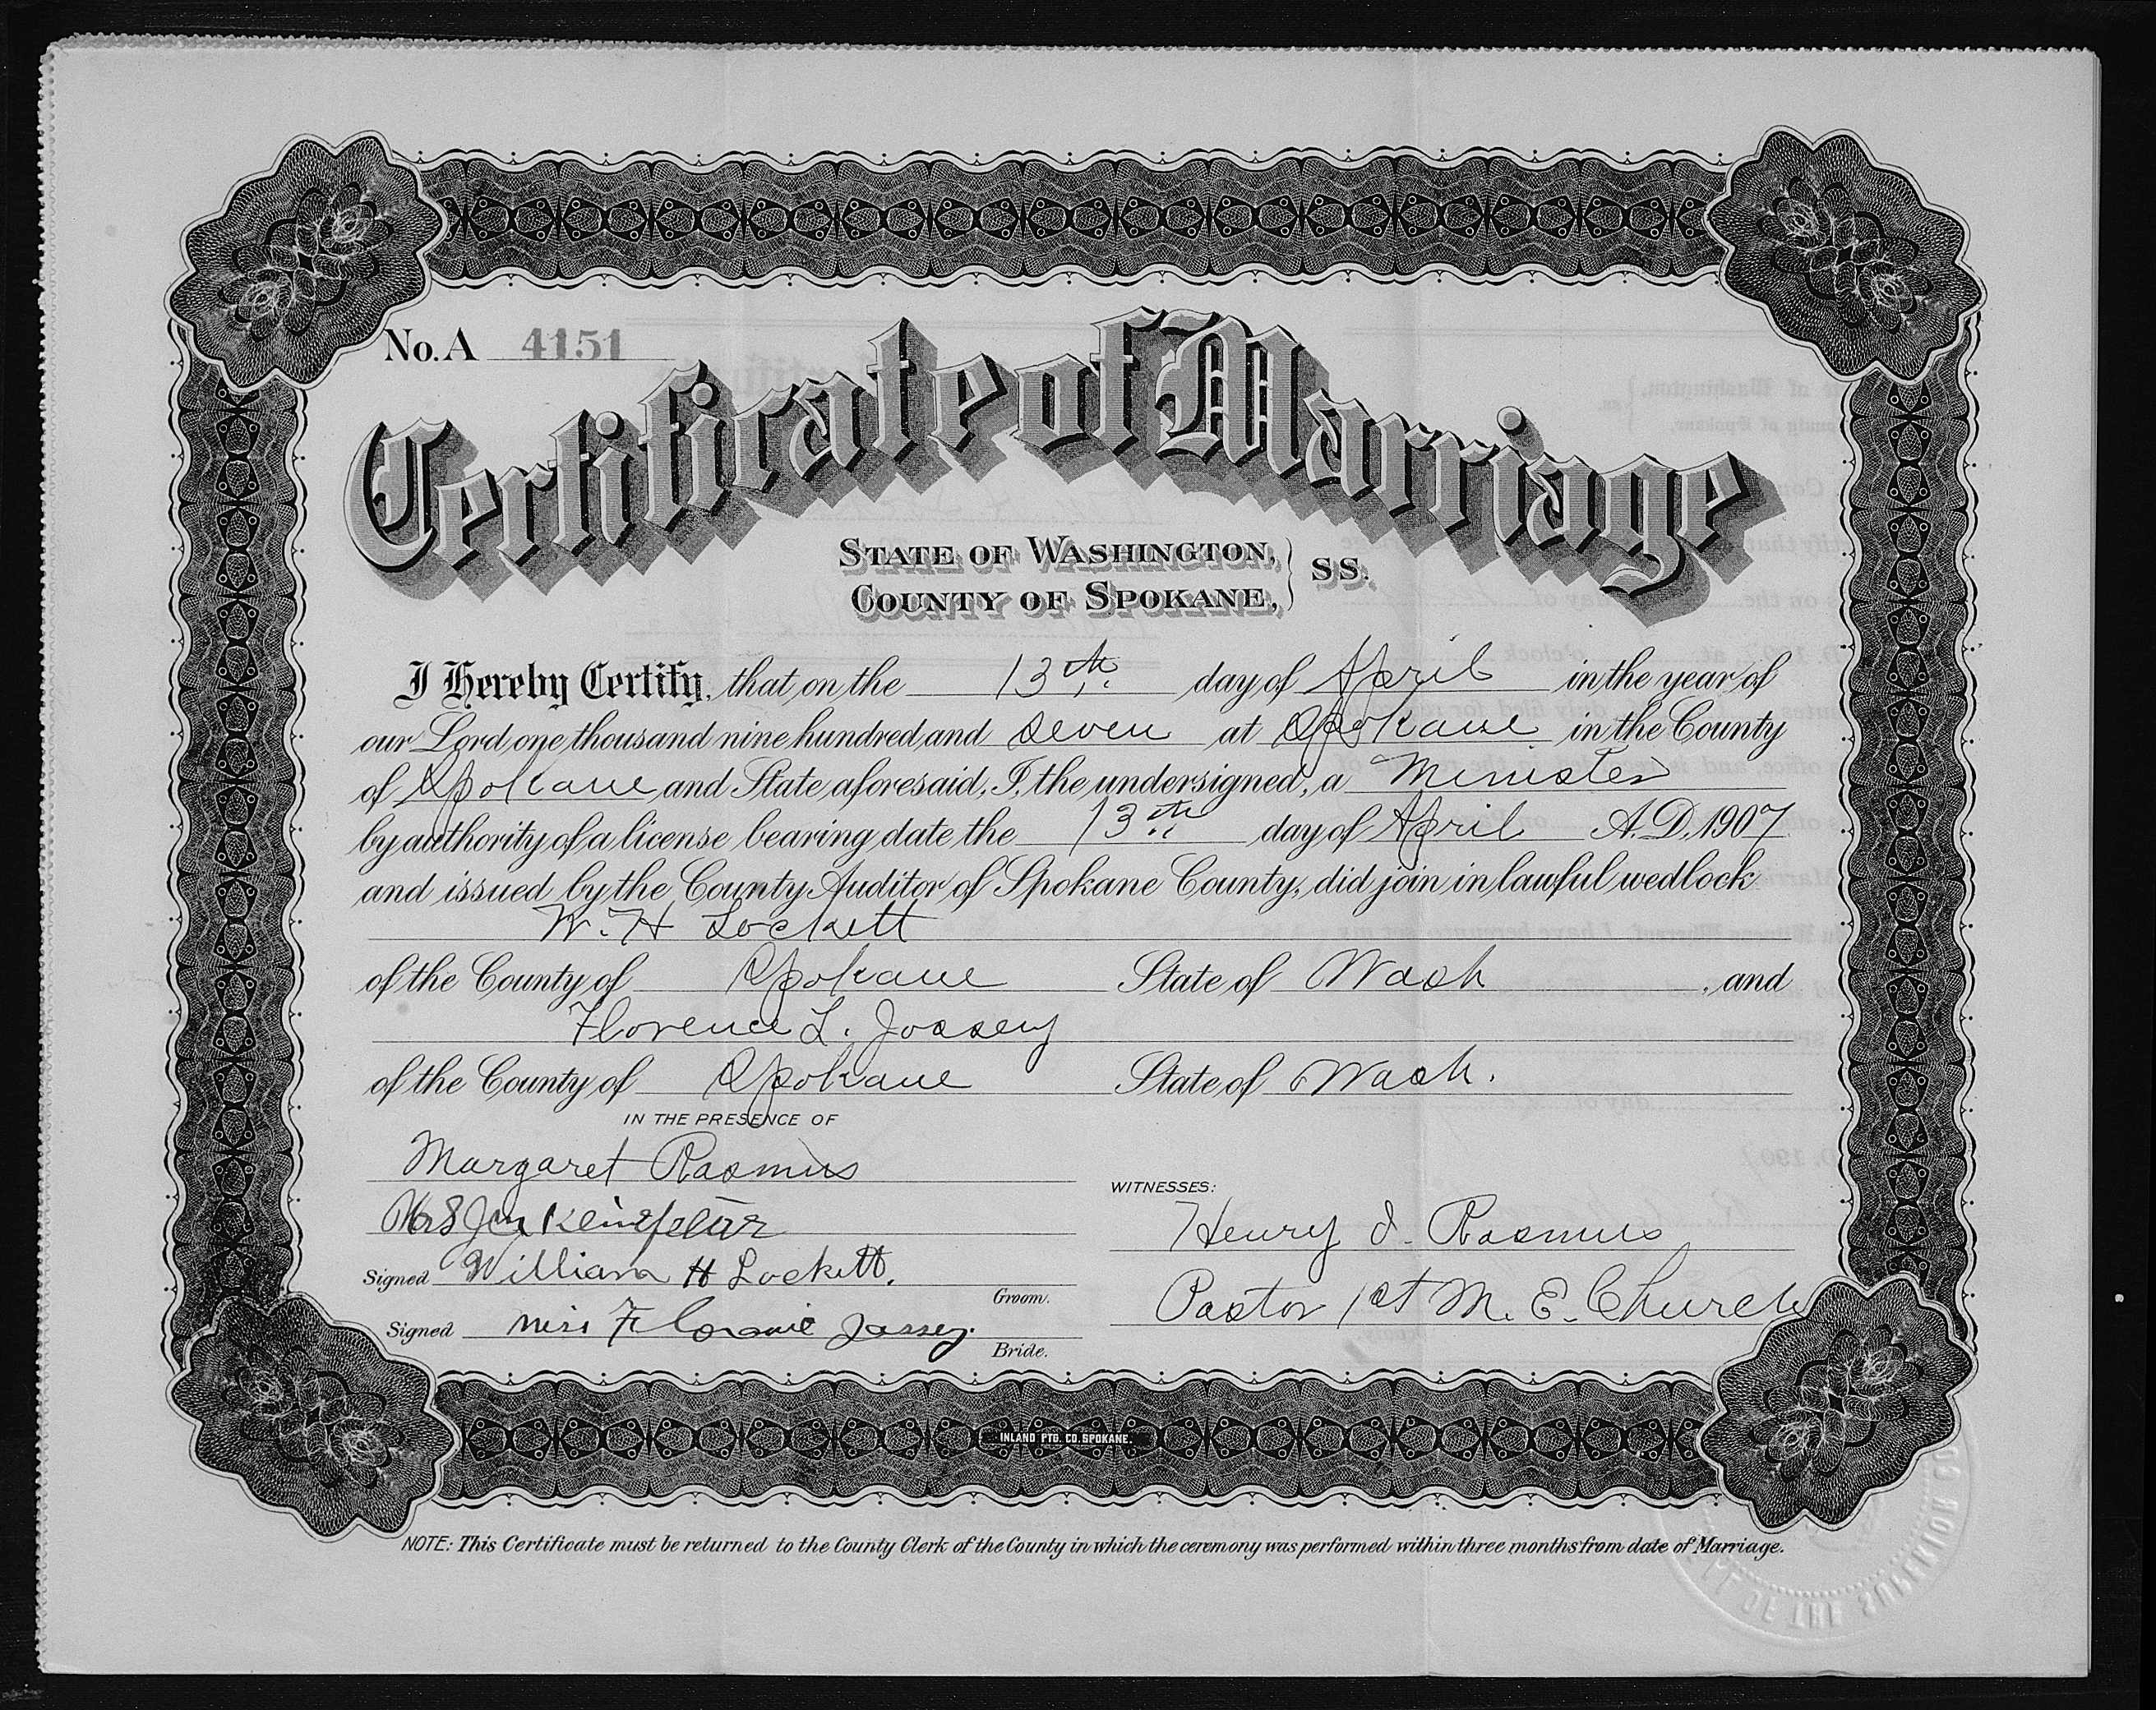 No. A 4151
Certificate of Marriage
STATE OF WASHINGTON,
COUNTY OF SPOKANE, } SS.
I Hereby Certify, that on the 13th day of April in the year of
our Lord one thousand nine hundred and seven at Spokane in the County
of Spokane and State aforesaid, I, the undersigned, a Minister
by authority of a license bearing date the 13th day of April A.D. 1907
and issued by the County Auditor of Spokane County, did join in lawful wedlock
W. H Lockett
of the County of Spokane State of Wash , and
Florence L. Jossey
of the County of Spokane State of Wash.
IN THE PRESENCE OF
Margaret Rasmus
WITNESSES:
Henry I. Rasmus
Signed William H Lockett.
Groom.
Pastor 1st M. E. Church
Signed Miss Jassey.
Bride.
INLAND PTG. CO. SPOKANE.
NOTE: This Certificate must be returned to the County Clerk of the County in which the ceremony was performed within three months from date of Marriage.